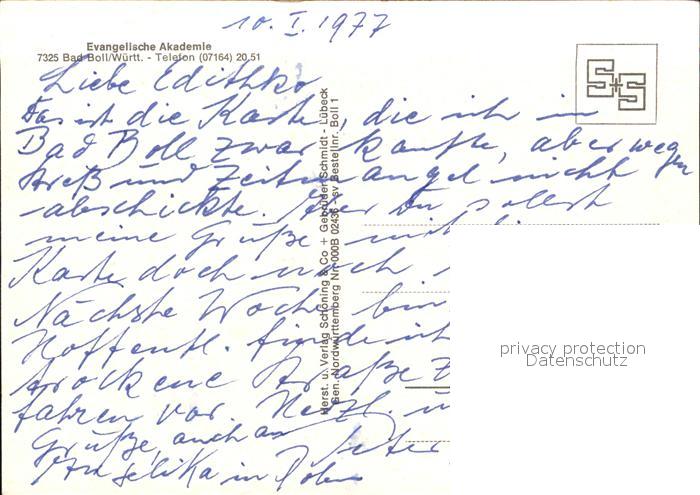 10. I. 1977
Evangelische Akademie
7325 Bad Boll/Württ. - Telefon (07164) 20 51
S+S
Liebe Edithko
Das ist die Karte, die ich in
Bad Boll zwar kaufte, aber wegen
Streß und Zeitmangel nicht
abschickte. Aber Du sollst
meine Grüße mit
Karte doch noch
Nächste Woche bin
Hoffentl. finde ich
trockene Straße z
fahren vor. Herzl.
Grüße, auch an Peter
Angelika in
Herst. u. Verlag Schöning & Co + Gebrüder Schmidt - Lübeck
Gen. Nordwürttemberg Nr. 000B 02436 - sv Bestellnr. Boll 1
privacy protection
Datenschutz